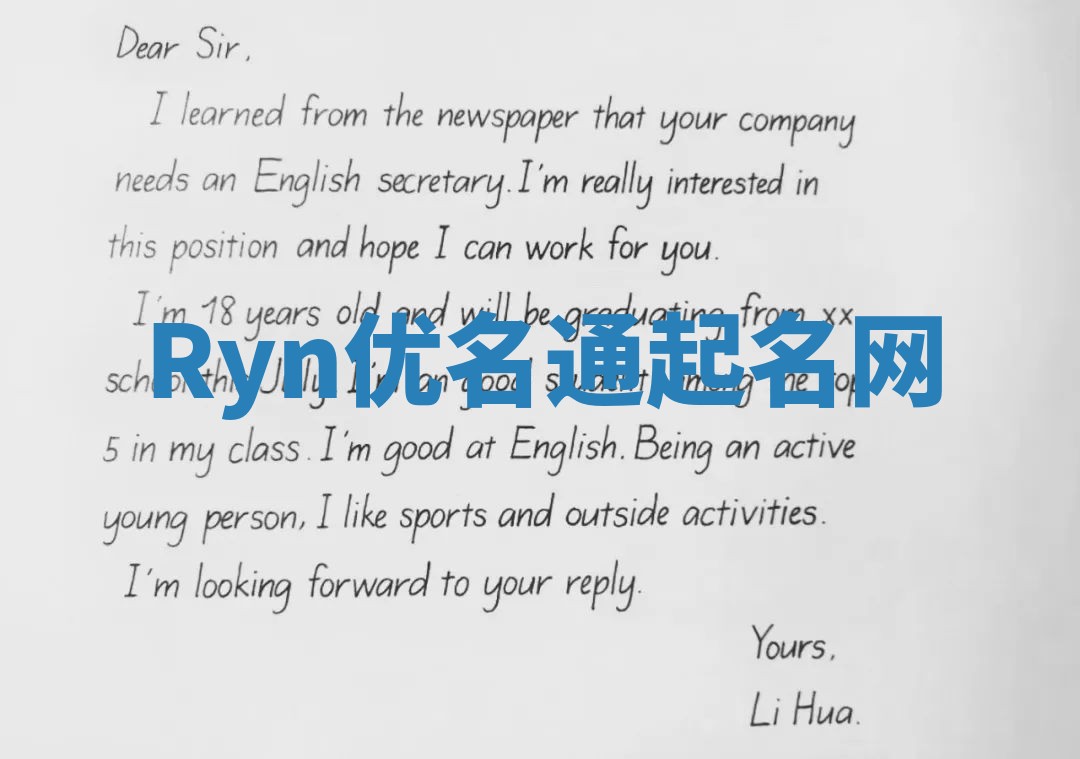 Dear Sir,
I learned from the newspaper that your company
needs an English secretary. I'm really interested in
this position and hope I can work for you.
I'm 18 years old and will be graduating from xx
Ryn优名通起名网
school this July. I'm an good student, among the top
5 in my class. I'm good at English. Being an active
young person, I like sports and outside activities.
I'm looking forward to your reply.
Yours,
Li Hua.